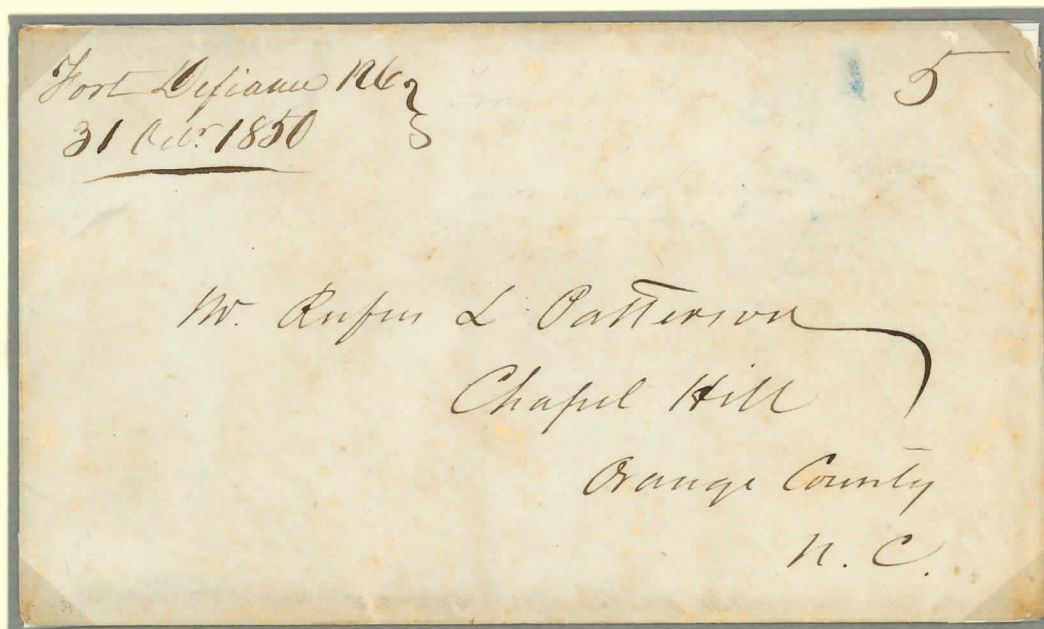 Fort Defiance NC
31 Octr. 1850
5
Mr. Rufus L Patterson
Chapel Hill
Orange County
N. C.